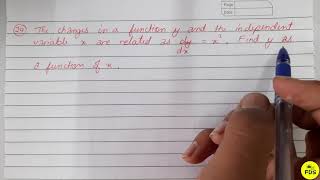 Page
Date
24 The changes in a function y and the independent
variable x are related as dy/dx = x². Find y as
a function of x.
FDS